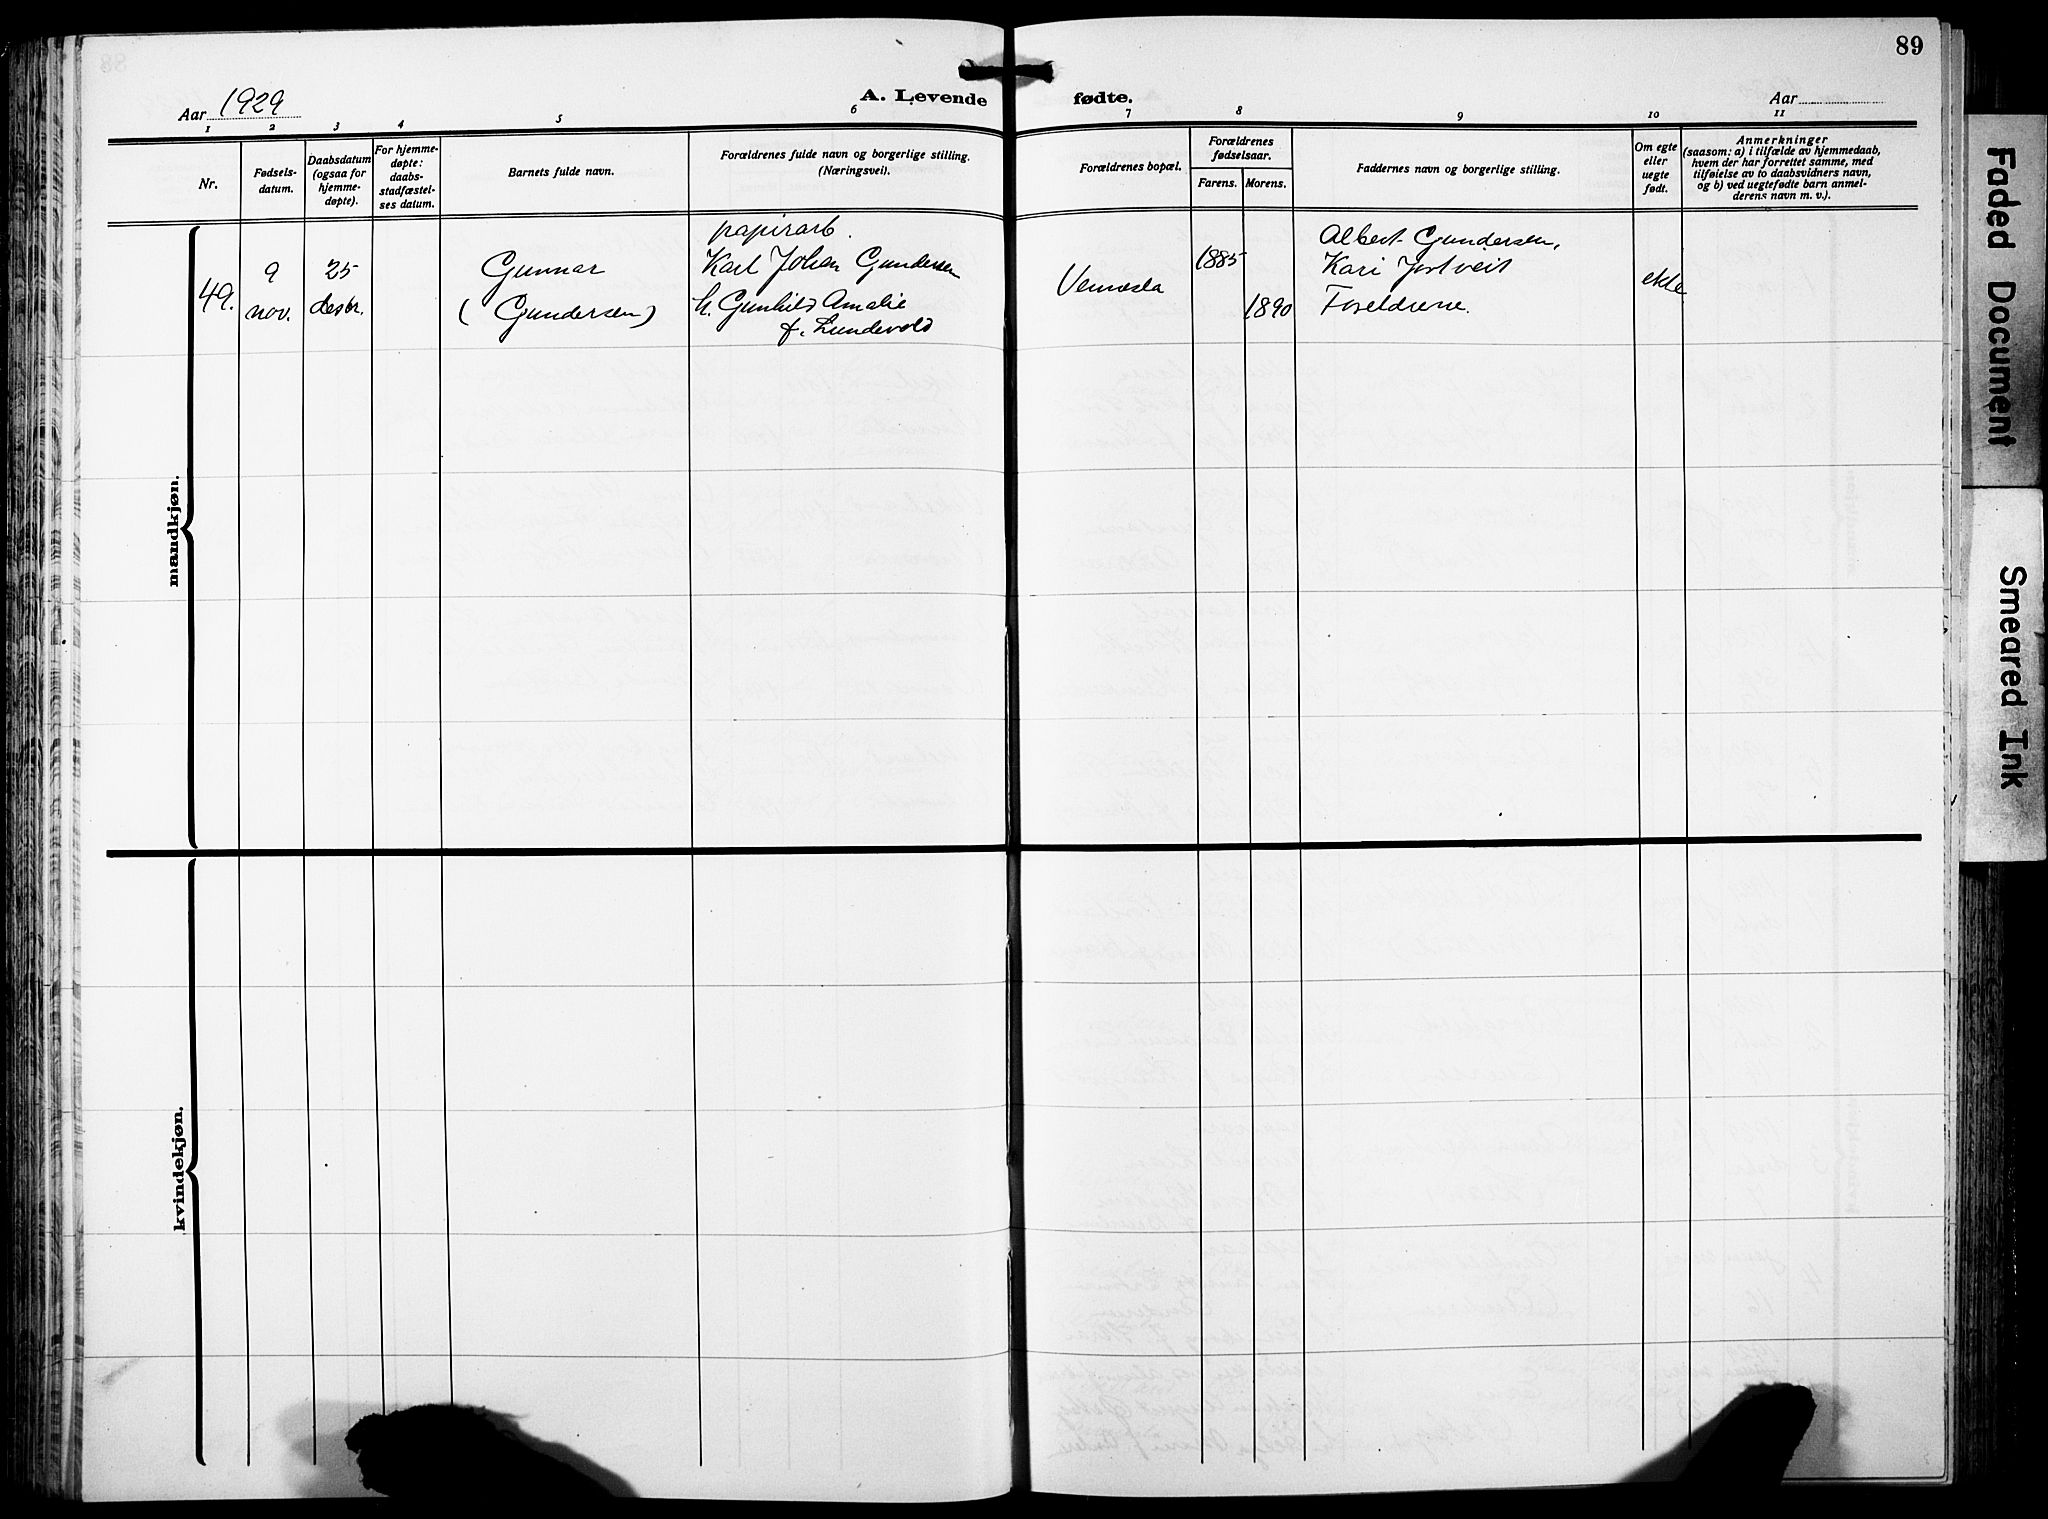 89
Aar 1929
A. Levende fødte.
Aar
1 2 3 4 5 6 7 8 9 10 11
Nr.
Fødsels-
datum.
Daabsdatum
(ogsaa for
hjemme-
døpte).
For hjemme-
døpte:
daabs-
stadfæstel-
ses datum.
Barnets fulde navn.
Forældrenes fulde navn og borgerlige stilling.
(Næringsvei).
Forældrenes bopæl.
Forældrenes
fødselsaar.
Farens. Morens.
Faddernes navn og borgerlige stilling.
Om egte
eller
uegte
født.
Anmerkninger
(saasom: a) i tilfælde av hjemmedaab,
hvem der har forrettet samme, med
tilføielse av to daabsvidners navn,
og b) ved uegtefødte barn anmel-
derens navn m. v.).
mandkjøn.
49.
9
nov.
25
desbr.
Gunnar
(Gundersen)
papirarb.
Karl Johan Gundersen
h. Gunhild Amalie
f. Lundevold
Vennesla
1885
1890
Albert Gundersen,
Kari Jortveit
Foreldrene.
ekte
kvindekjøn.
Faded Document
Smeared Ink